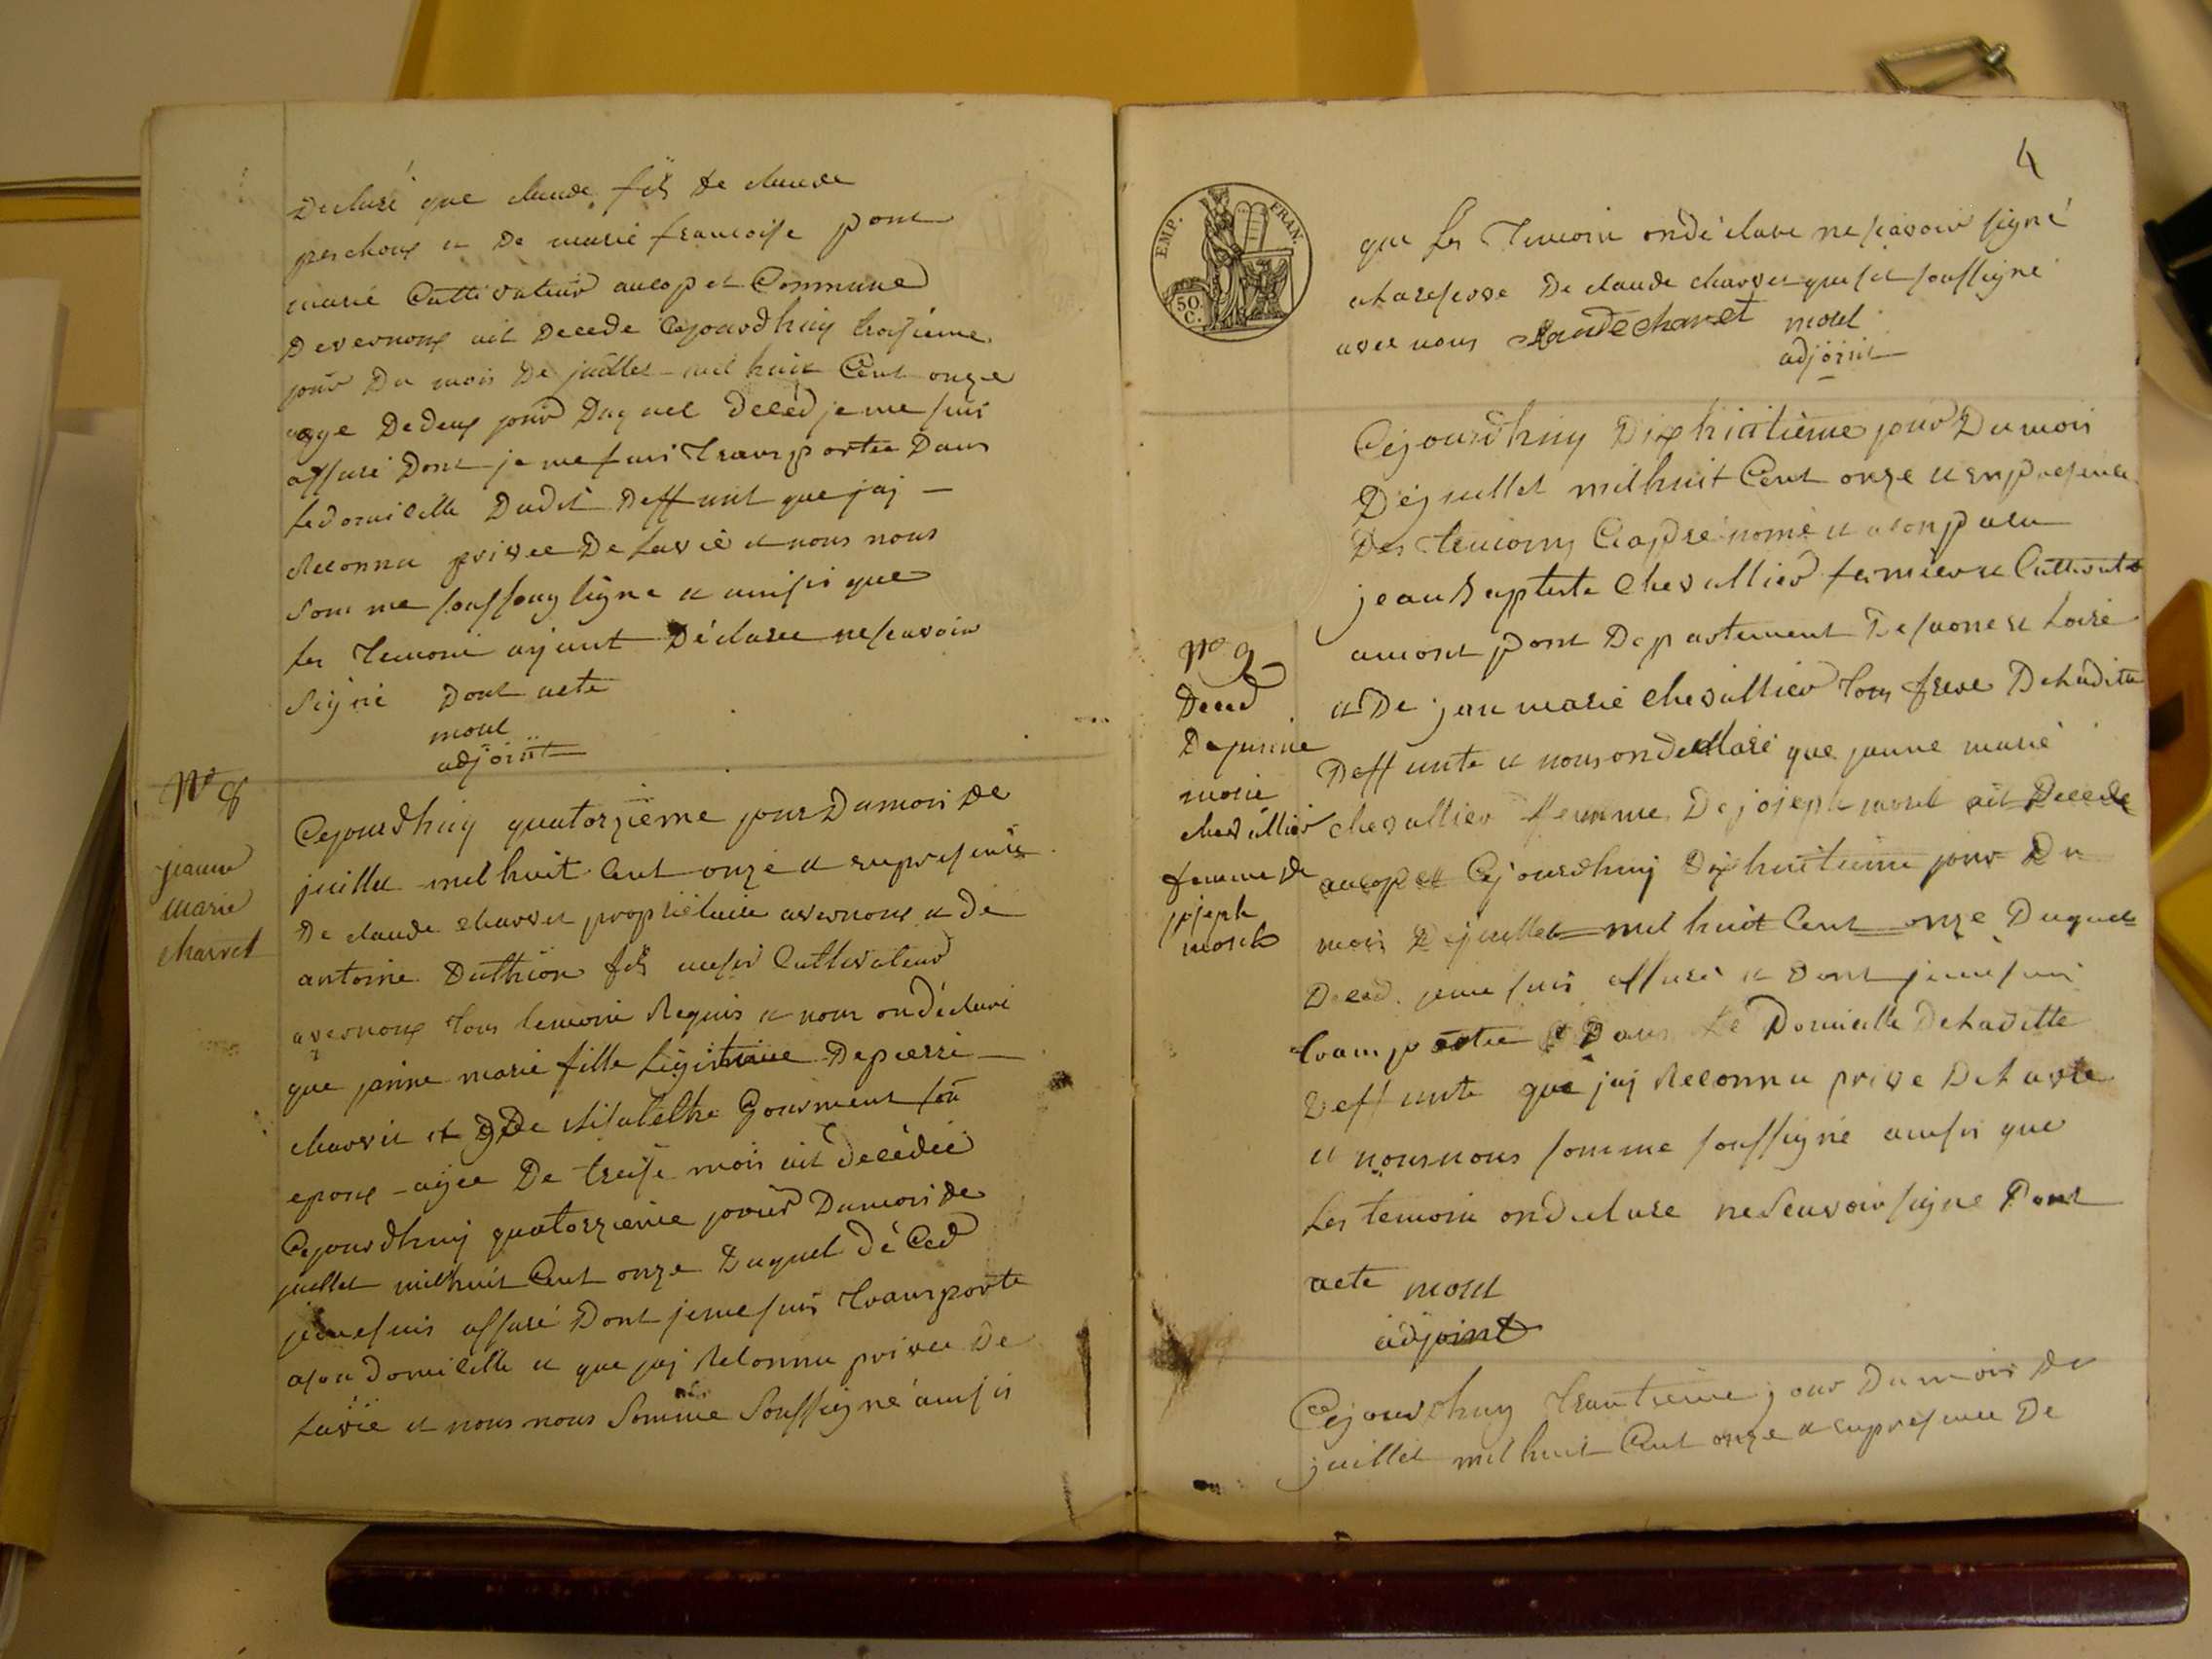 Declaré que claude fils de claude
perchoux et De marie francoise pont
marié Cultivateur aucopet Commune
Devernoux ait Decede Cejourdhuy troisieme
jour Du mois De juillet mil huit Cent onze
agge Dedeux jour Duquel deced je me suis
assuré Dont je me suis Transportee Dans
ledomicille Dudit Deffunt que jaj
Reconnu privee De lavie et nous nous
somme soussoug signe et ainssi que
les Temoin ayant Déclaree nescavoir
Signé Dont acte
morel
adjoint
N° 8
jeanne
marie
charvet
Cejourdhuy quatorzième jour Dumois de
juillet mil huit Cent onze et enpresence
De claude charvet propriétaire avernoux et de
antoine Duthion fils aussi Cultivateur
avernoux tous temoin Requis et nous ondéclaré
que janne marie fille Légitime Depierre
charvet et De Elisabethe Gourment son
epoux agee De treise mois ait décédée
Cejourdhuy quatorzieme jour Dumois de
juillet milhuit Cent onze Duquel déCed
jemesuis assuré Dont jemesuis transporte
ason domicille et que jaj Reconnu privee De
lavie et nous nous Somme Soussigné ainssi
4
EMP. FRAN.
50 C.
que les Temoin ondéclare nescavoir signé
alareserve De claude charvet quisit soussigné
avec nous claude charvet morel
adjoint
Cejourdhuy Dixhuitième jour Dumois
Dejuillet milhuit Cent onze et enpresence
Des temoins Ciaprè nomé et acomparu
jean Baptiste Chevallier fermier et Cultivat
amont pont Departement De saone et Loire
et De jean marie chevallier tous frere Deladitte
Deffunte et nous ondeclaré que janne marie
N° 9
Deced
Dejanne
marie
chevallier
femme de
joseph
morel
chevallier femme De joseph morel ait Decede
aucopet Cejourdhuy Dixhuitieme jour Du
mois Dejuillet mil huit Cent onze Duquel
Deced jeme suis assuré et Dont jemesuis
transportee Dans le Domicille Deladitte
Deffunte que jaj Reconnu privé Delavie
et nous nous somme soussigné ainssi que
Les temoin ondeclare neScavoir signe Dont
acte morel
adjoint
Cejourdhuy trentieme jour Dumois de
juillet mil huit Cent onze et enpresence De